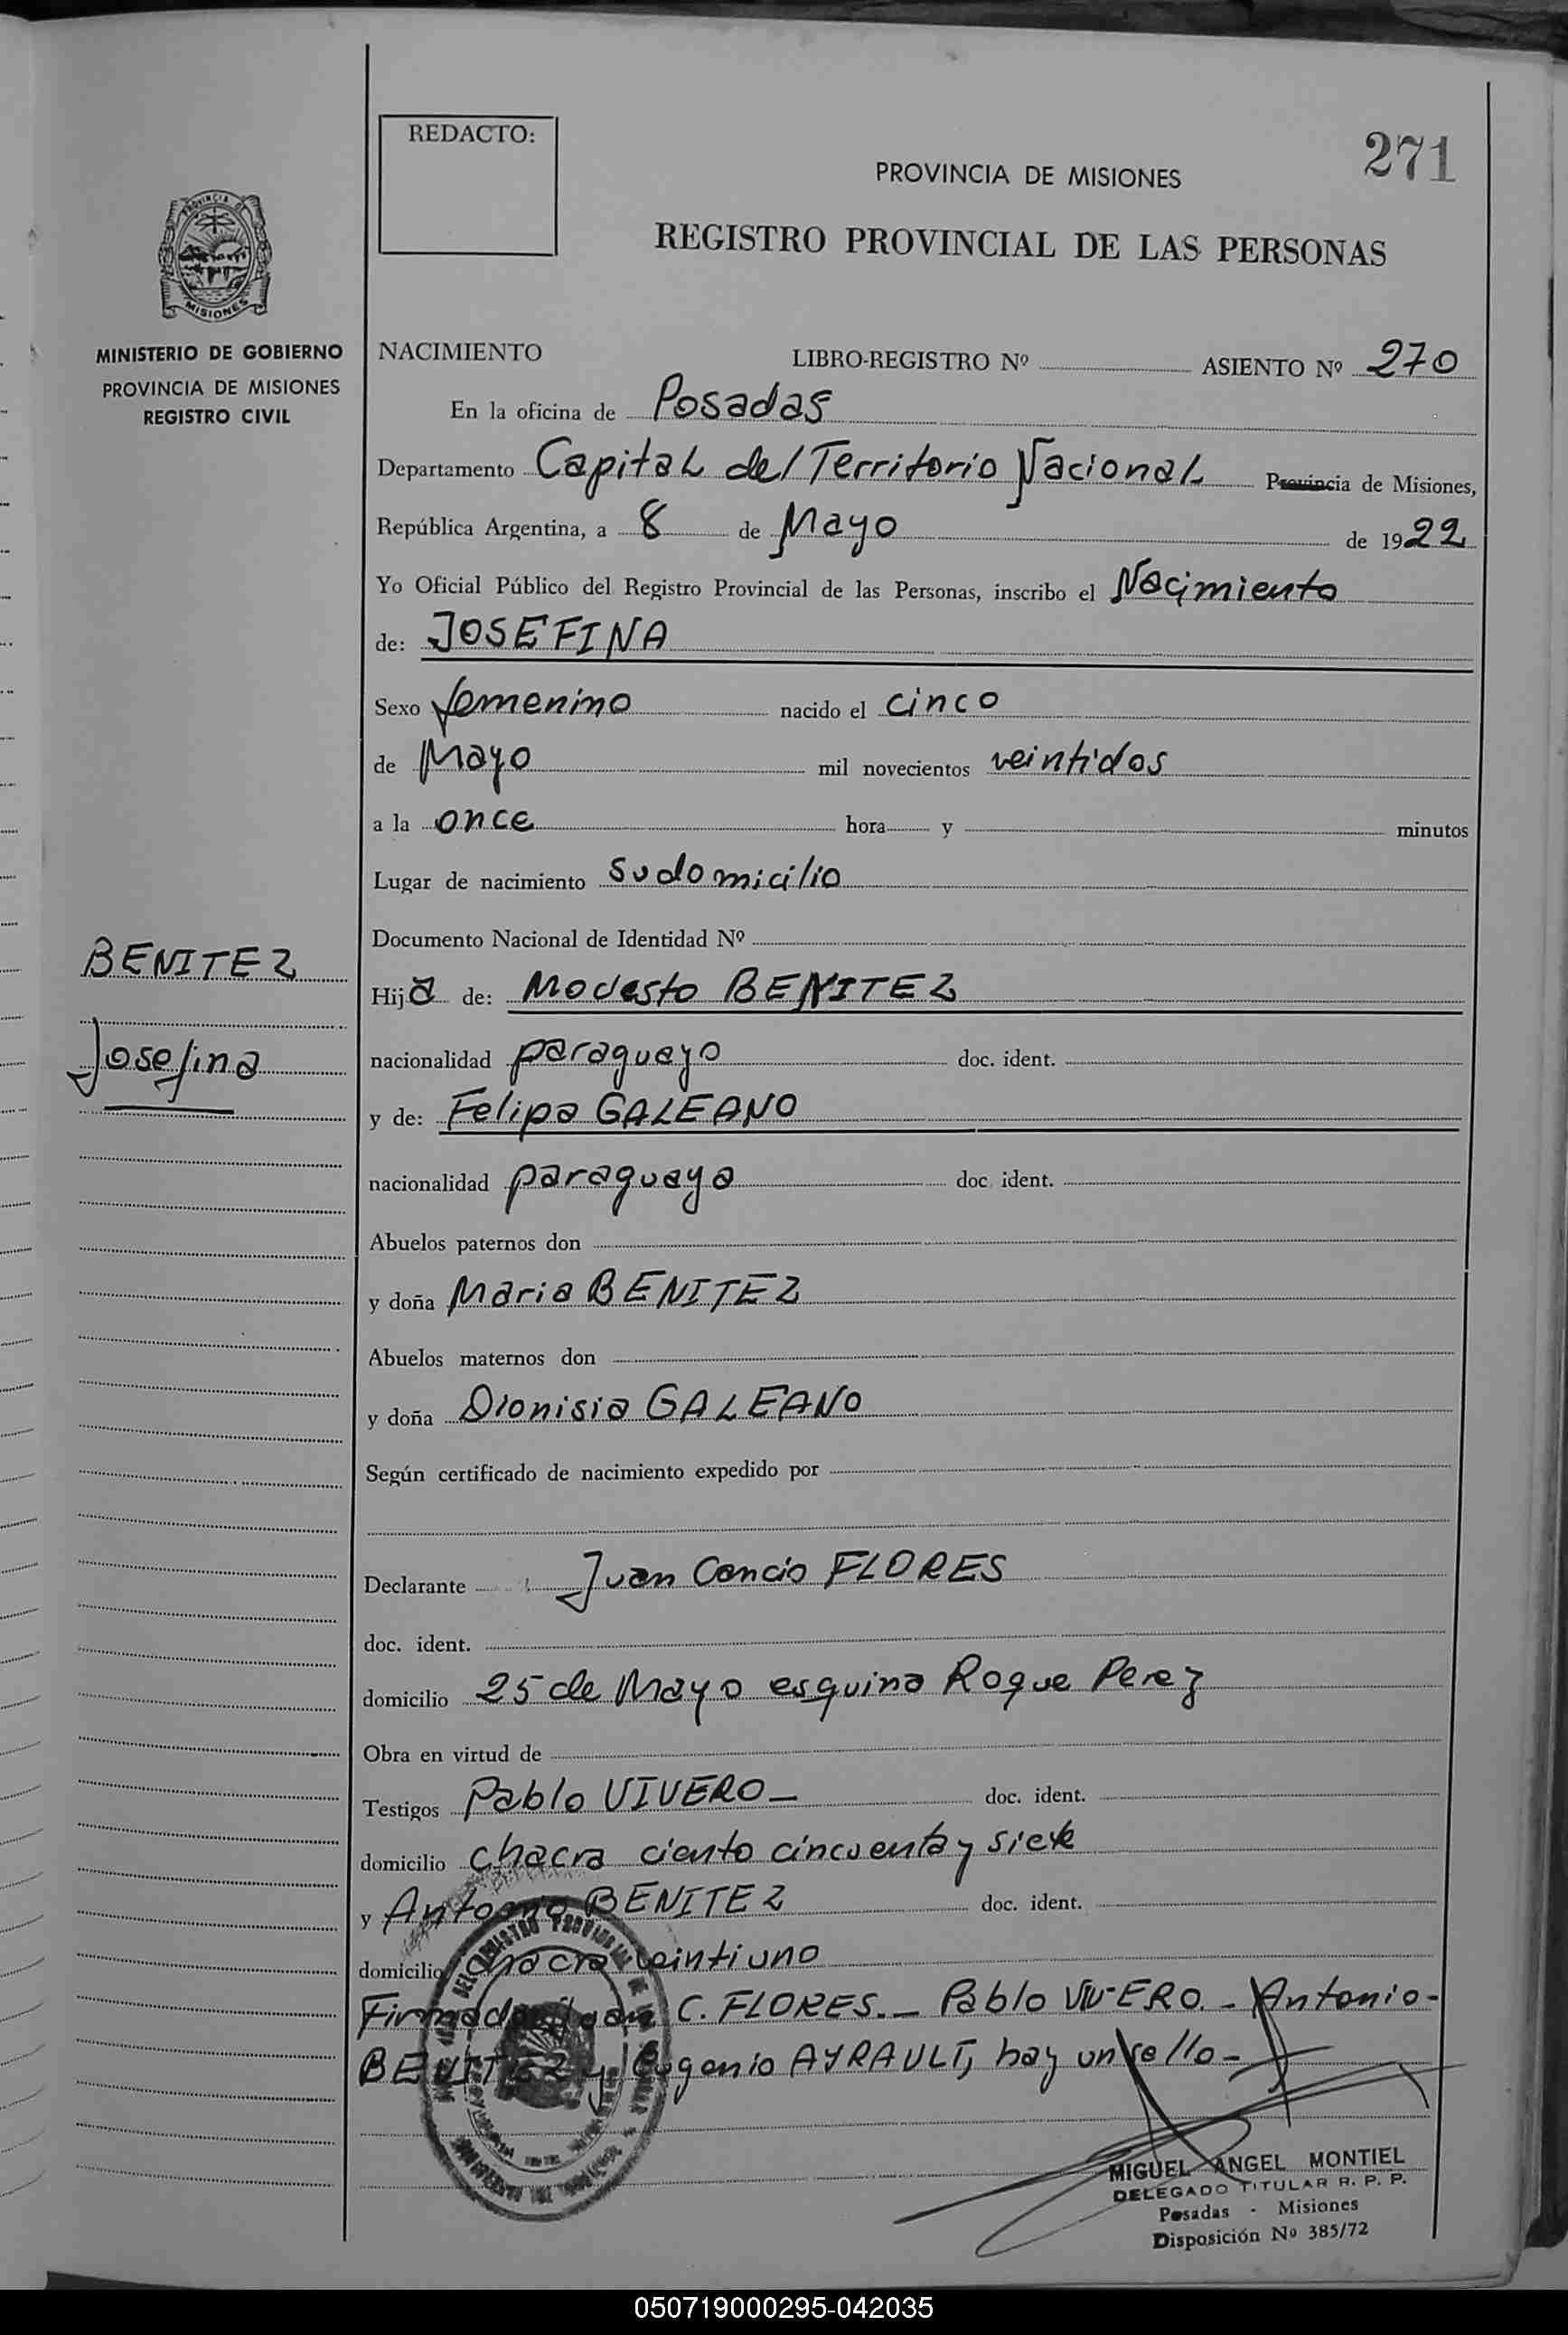 REDACTO:
271
PROVINCIA DE MISIONES
REGISTRO PROVINCIAL DE LAS PERSONAS
PROVINCIA DE
MISIONES
MINISTERIO DE GOBIERNO
PROVINCIA DE MISIONES
REGISTRO CIVIL
BENITEZ
Josefina
NACIMIENTO LIBRO-REGISTRO Nº ASIENTO Nº 270
En la oficina de Posadas
Departamento Capital del Territorio Nacional Provincia de Misiones,
República Argentina, a 8 de Mayo de 1922
Yo Oficial Público del Registro Provincial de las Personas, inscribo el Nacimiento
de: JOSEFINA
Sexo femenino nacido el cinco
de Mayo mil novecientos veintidos
a la once hora y minutos
Lugar de nacimiento su domicilio
Documento Nacional de Identidad Nº
Hija de: Modesto BENITEZ
nacionalidad paraguayo doc. ident.
y de: Felipa GALEANO
nacionalidad paraguaya doc. ident.
Abuelos paternos don
y doña Maria BENITEZ
Abuelos maternos don
y doña Dionisia GALEANO
Según certificado de nacimiento expedido por
Declarante Juan Cancio FLORES
doc. ident.
domicilio 25 de Mayo esquina Roque Perez
Obra en virtud de
Testigos Pablo VIVERO- doc. ident.
domicilio chacra ciento cincuenta y siete
y Antonio BENITEZ doc. ident.
domicilio chacra veintiuno
Firmado: Juan C. FLORES.- Pablo VIVERO.- Antonio-
BENITEZ y Eugenio AYRAULT, hay un sello-
MIGUEL ANGEL MONTIEL
DELEGADO TITULAR R. P. P.
Posadas - Misiones
Disposición Nº 385/72
050719000295-042035